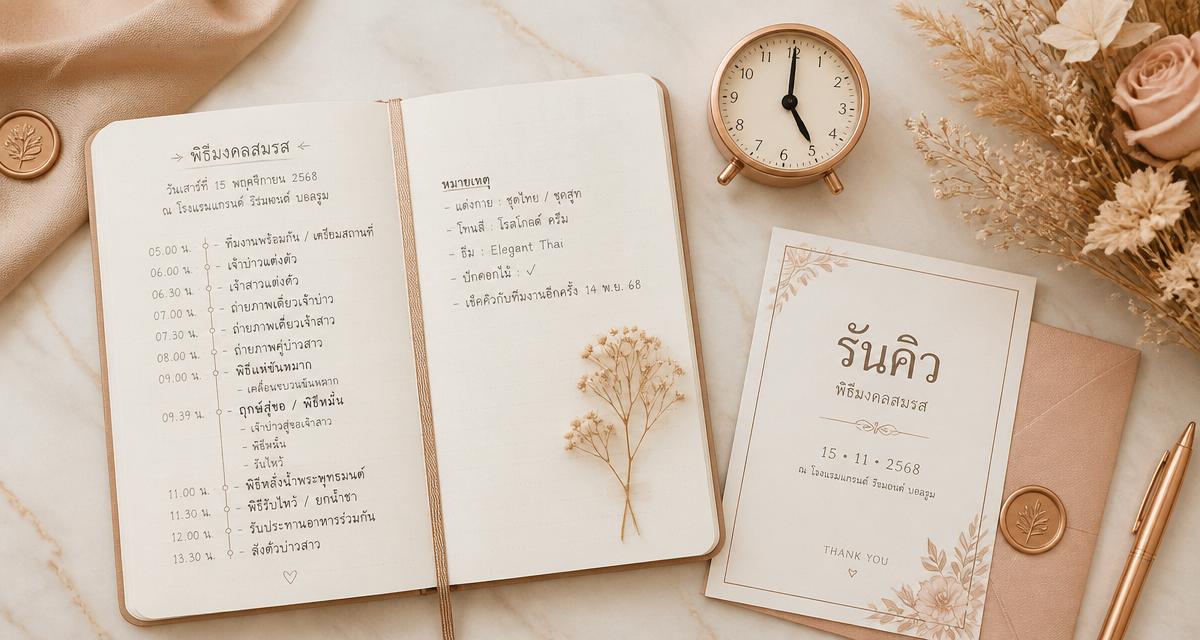 พิธีมงคลสมรส
วันเสาร์ที่ 15 พฤศจิกายน 2568
ณ โรงแรมแกรนด์ ริชมอนด์ บอลรูม
05.00 น. - ทีมงานพร้อมกัน / เตรียมสถานที่
06.00 น. - เจ้าบ่าวแต่งตัว
06.30 น. - เจ้าสาวแต่งตัว
07.00 น. - ถ่ายภาพเดี่ยวเจ้าบ่าว
07.30 น. - ถ่ายภาพเดี่ยวเจ้าสาว
08.00 น. - ถ่ายภาพคู่บ่าวสาว
09.00 น. - พิธีแห่ขันหมาก
- เคลื่อนขบวนขันหมาก
09.39 น. - ฤกษ์สู่ขอ / พิธีหมั้น
- เจ้าบ่าวสู่ขอเจ้าสาว
- พิธีหมั้น
- รับไหว้
11.00 น. - พิธีหลั่งน้ำพระพุทธมนต์
11.30 น. - พิธีรับไหว้ / ยกน้ำชา
12.00 น. - รับประทานอาหารร่วมกัน
13.30 น. - ส่งตัวบ่าวสาว
หมายเหตุ
- แต่งกาย : ชุดไทย / ชุดสูท
- โทนสี : โรสโกลด์ ครีม
- ธีม : Elegant Thai
- ปักดอกไม้ : ✓
- เช็คคิวกับทีมงานอีกครั้ง 14 พ.ย. 68
12
1
2
3
4
5
6
7
8
9
10
11
รันคิว
พิธีมงคลสมรส
15 • 11 • 2568
ณ โรงแรมแกรนด์ ริชมอนด์ บอลรูม
THANK YOU